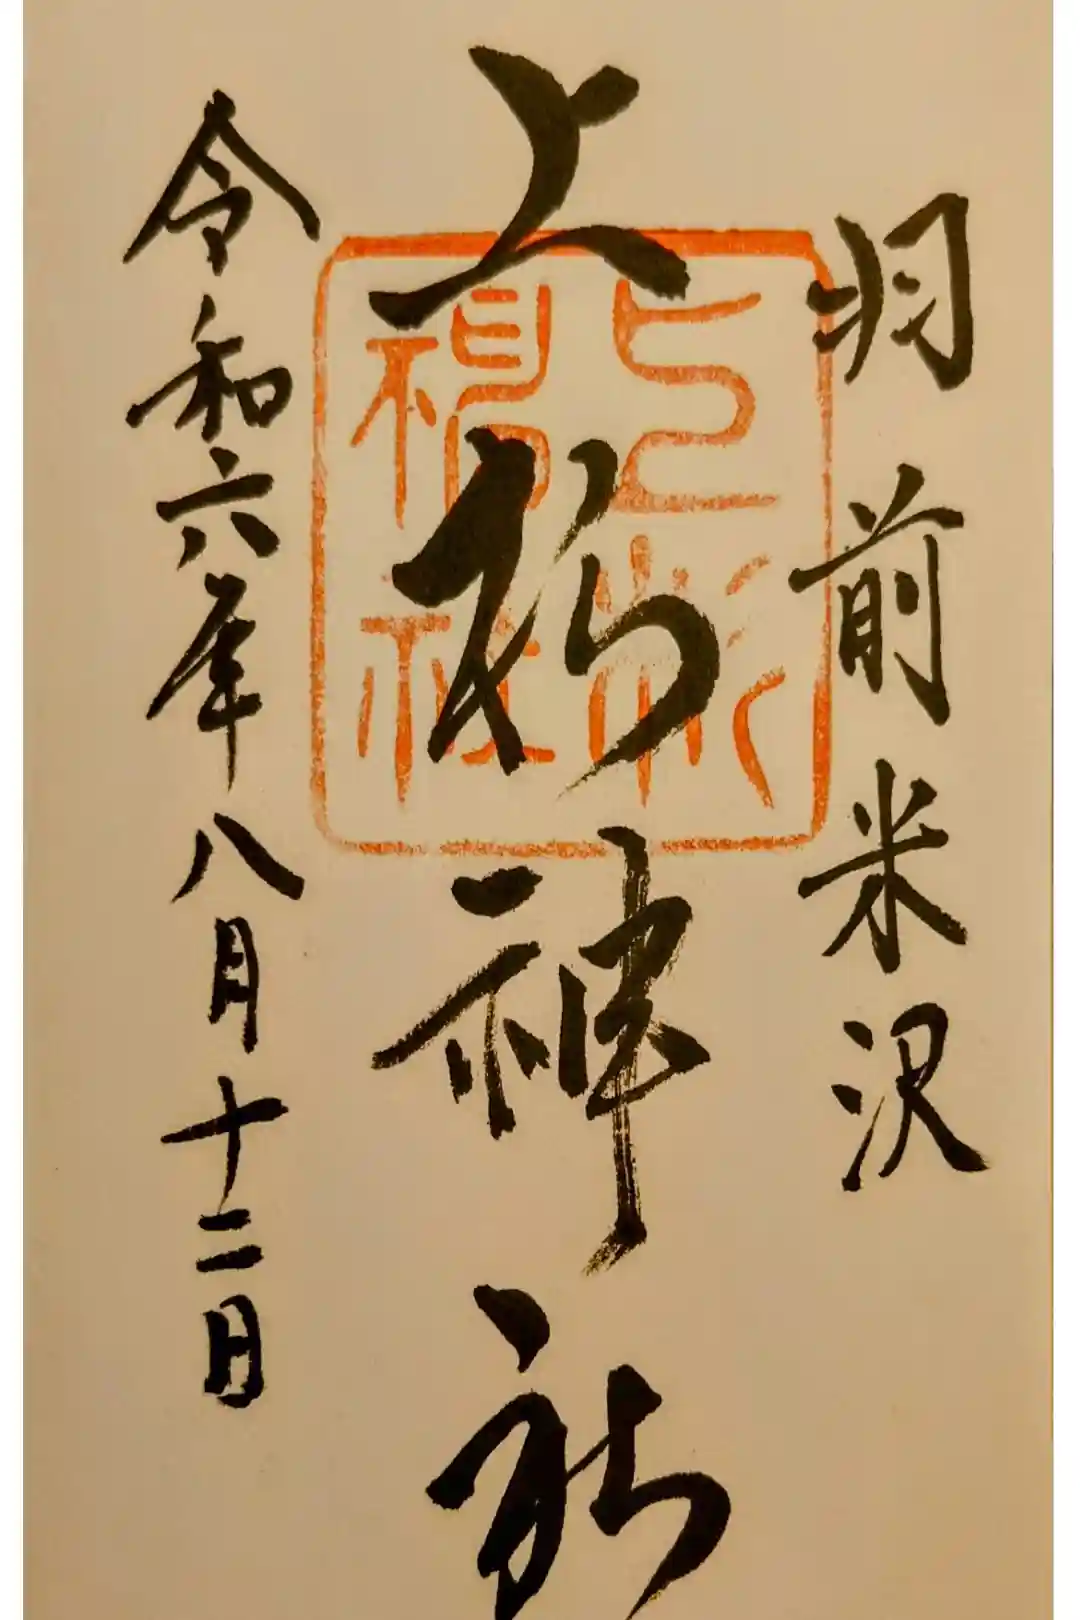 羽前米沢
上杉神社
上杉神社
令和六年八月十二日